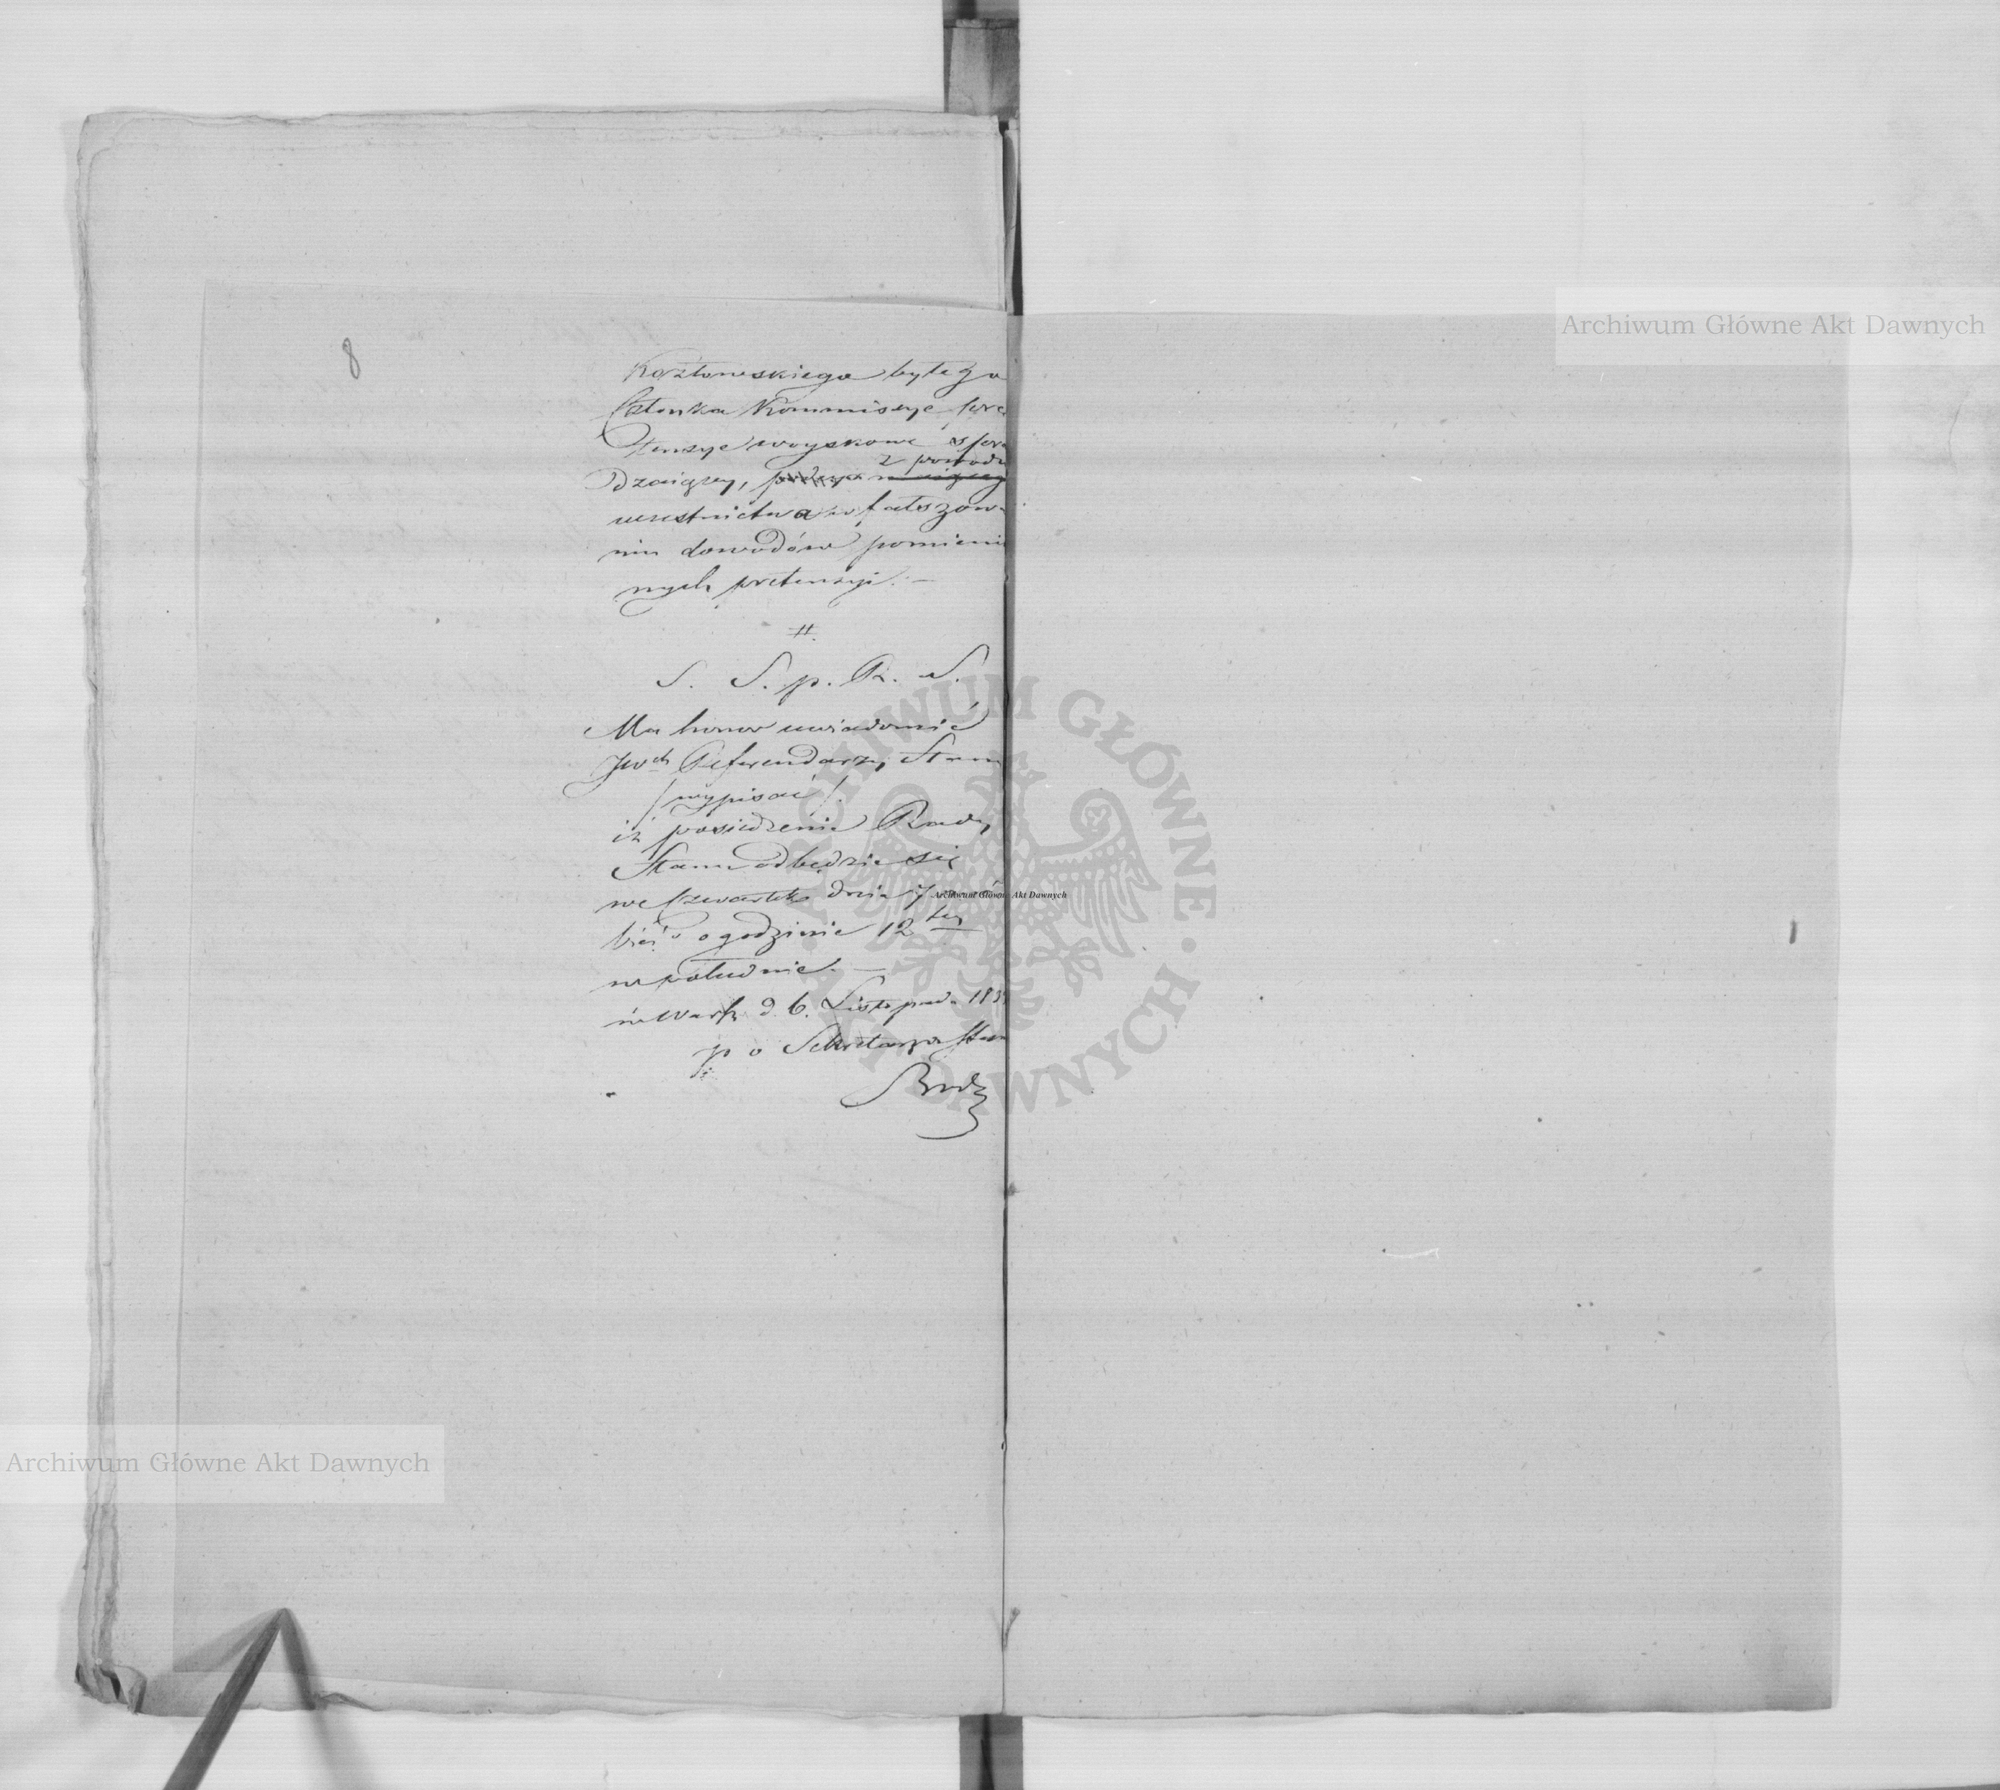 8
Kozłowskiego byłego
Członka Kommissye pre
tensye woyskowe spra
z powodu
dzaiącey,
uczestnictwa w fałszowa
niu dowodów pomienio
nych pretensyi. —
#.
S. S. p. R. S.
Ma honor uwiadomić
JWch Referendarzy Stanu
/ wypisać /.
iż posiedzenie Rady
Stanu odbędzie się
we Czwartek dnia 7
b. o godzinie 12tey
w południe. —
w Warsz d. 6. Listopada 183
p o Sekretarza Stanu
Archiwum Główne Akt Dawnych
Archiwum Główne Akt Dawnych
Archiwum Główne Akt Dawnych
ARCHIWUM GŁÓWNE · AKT DAWNYCH ·